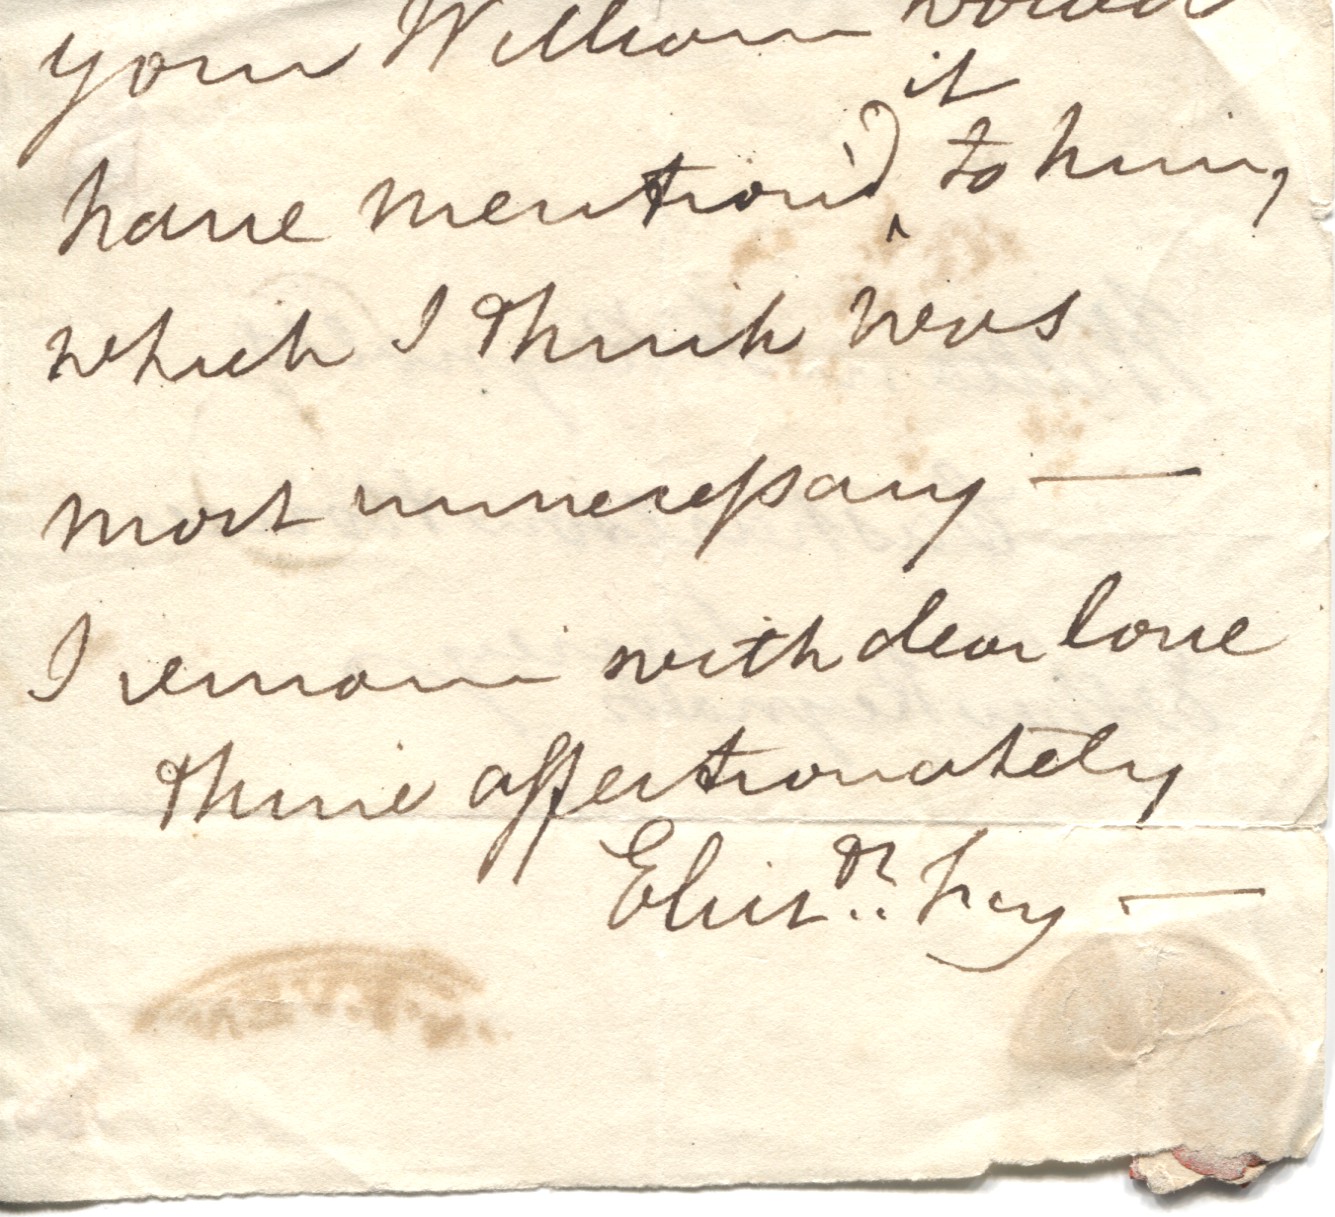 your William would
have mention'd it to him,
which I think was
most unnecessary —
I remain with dear love
thine affectionately
Elizth. Fry —